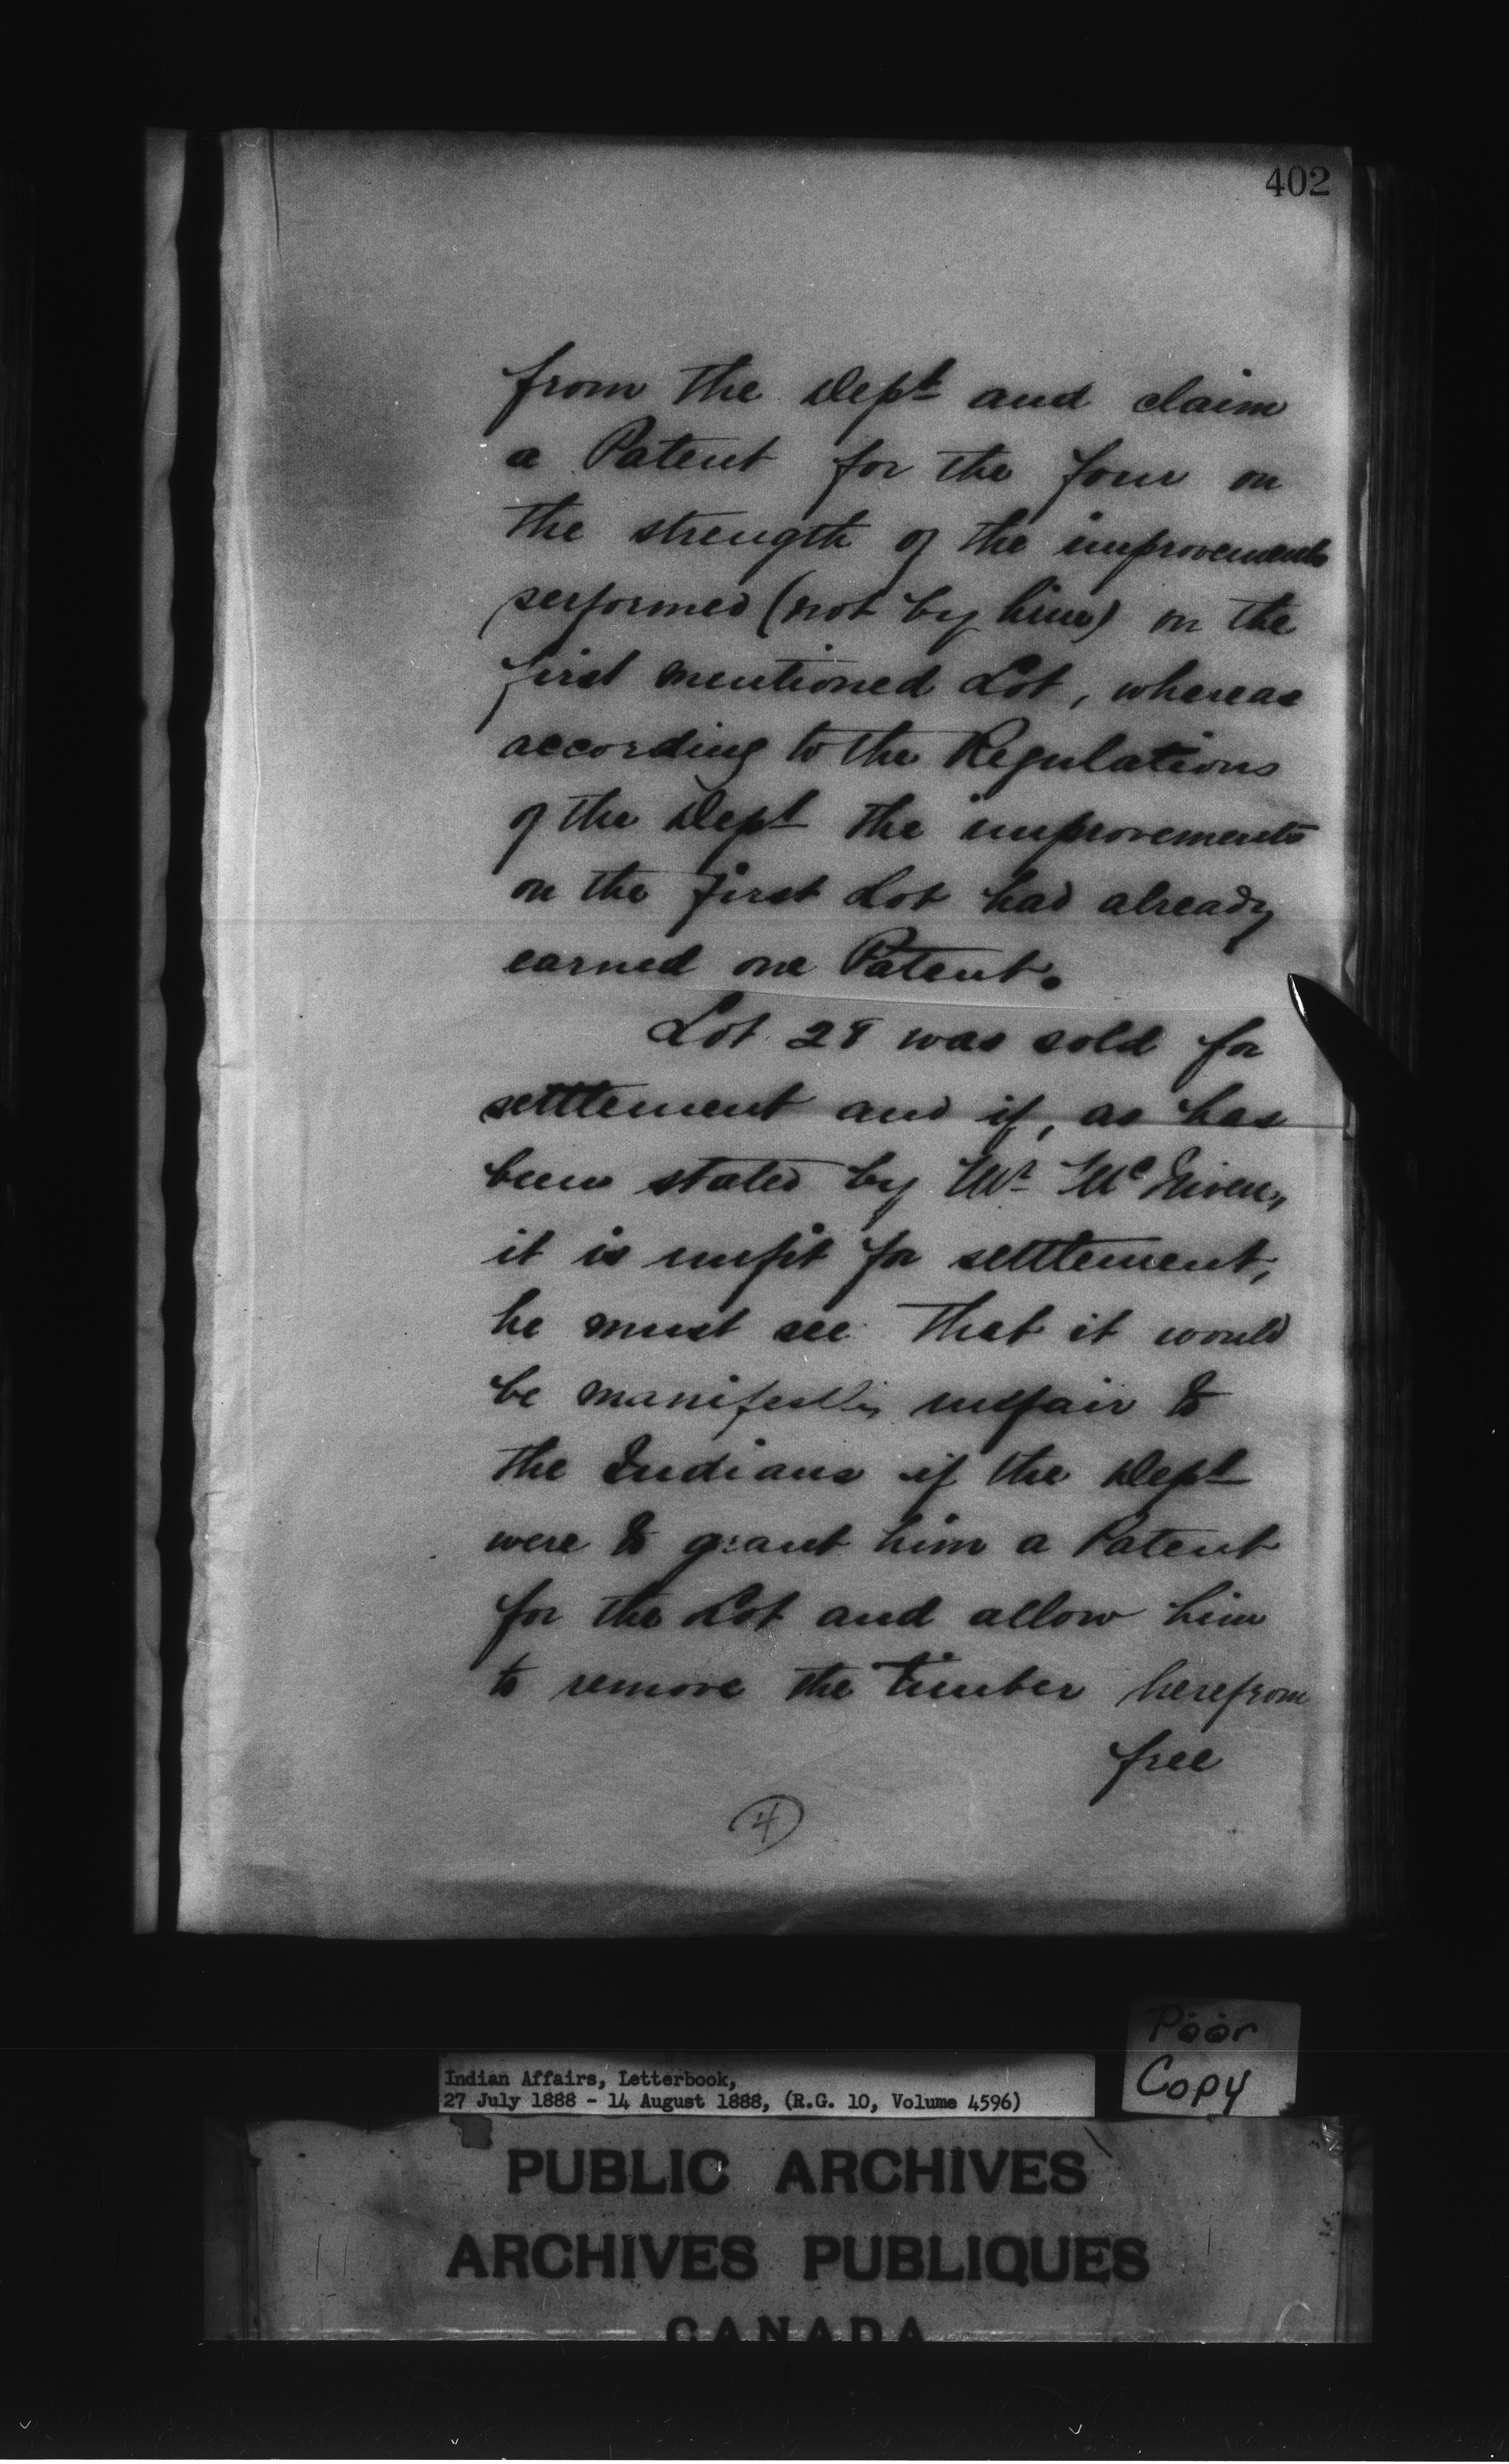 402
from the Dept and claim
a Patent for the four on
the strength of the improvements
performed (not by him) on the
first mentioned Lot, whereas
according to the Regulations
of the Dept the improvements
on the first Lot had already
earned one Patent.
Lot 28 was sold for
settlement and if, as has
been stated by Mr McNiven,
it is unfit for settlement,
he must see that it would
be manifestly unfair to
the Indians if the Dept
were to grant him a Patent
for the Lot and allow him
to remove the timber herefrom
free
4
Poor
Copy
Indian Affairs, Letterbook,
27 July 1888 - 14 August 1888, (R.G. 10, Volume 4596)
PUBLIC ARCHIVES
ARCHIVES PUBLIQUES
CANADA